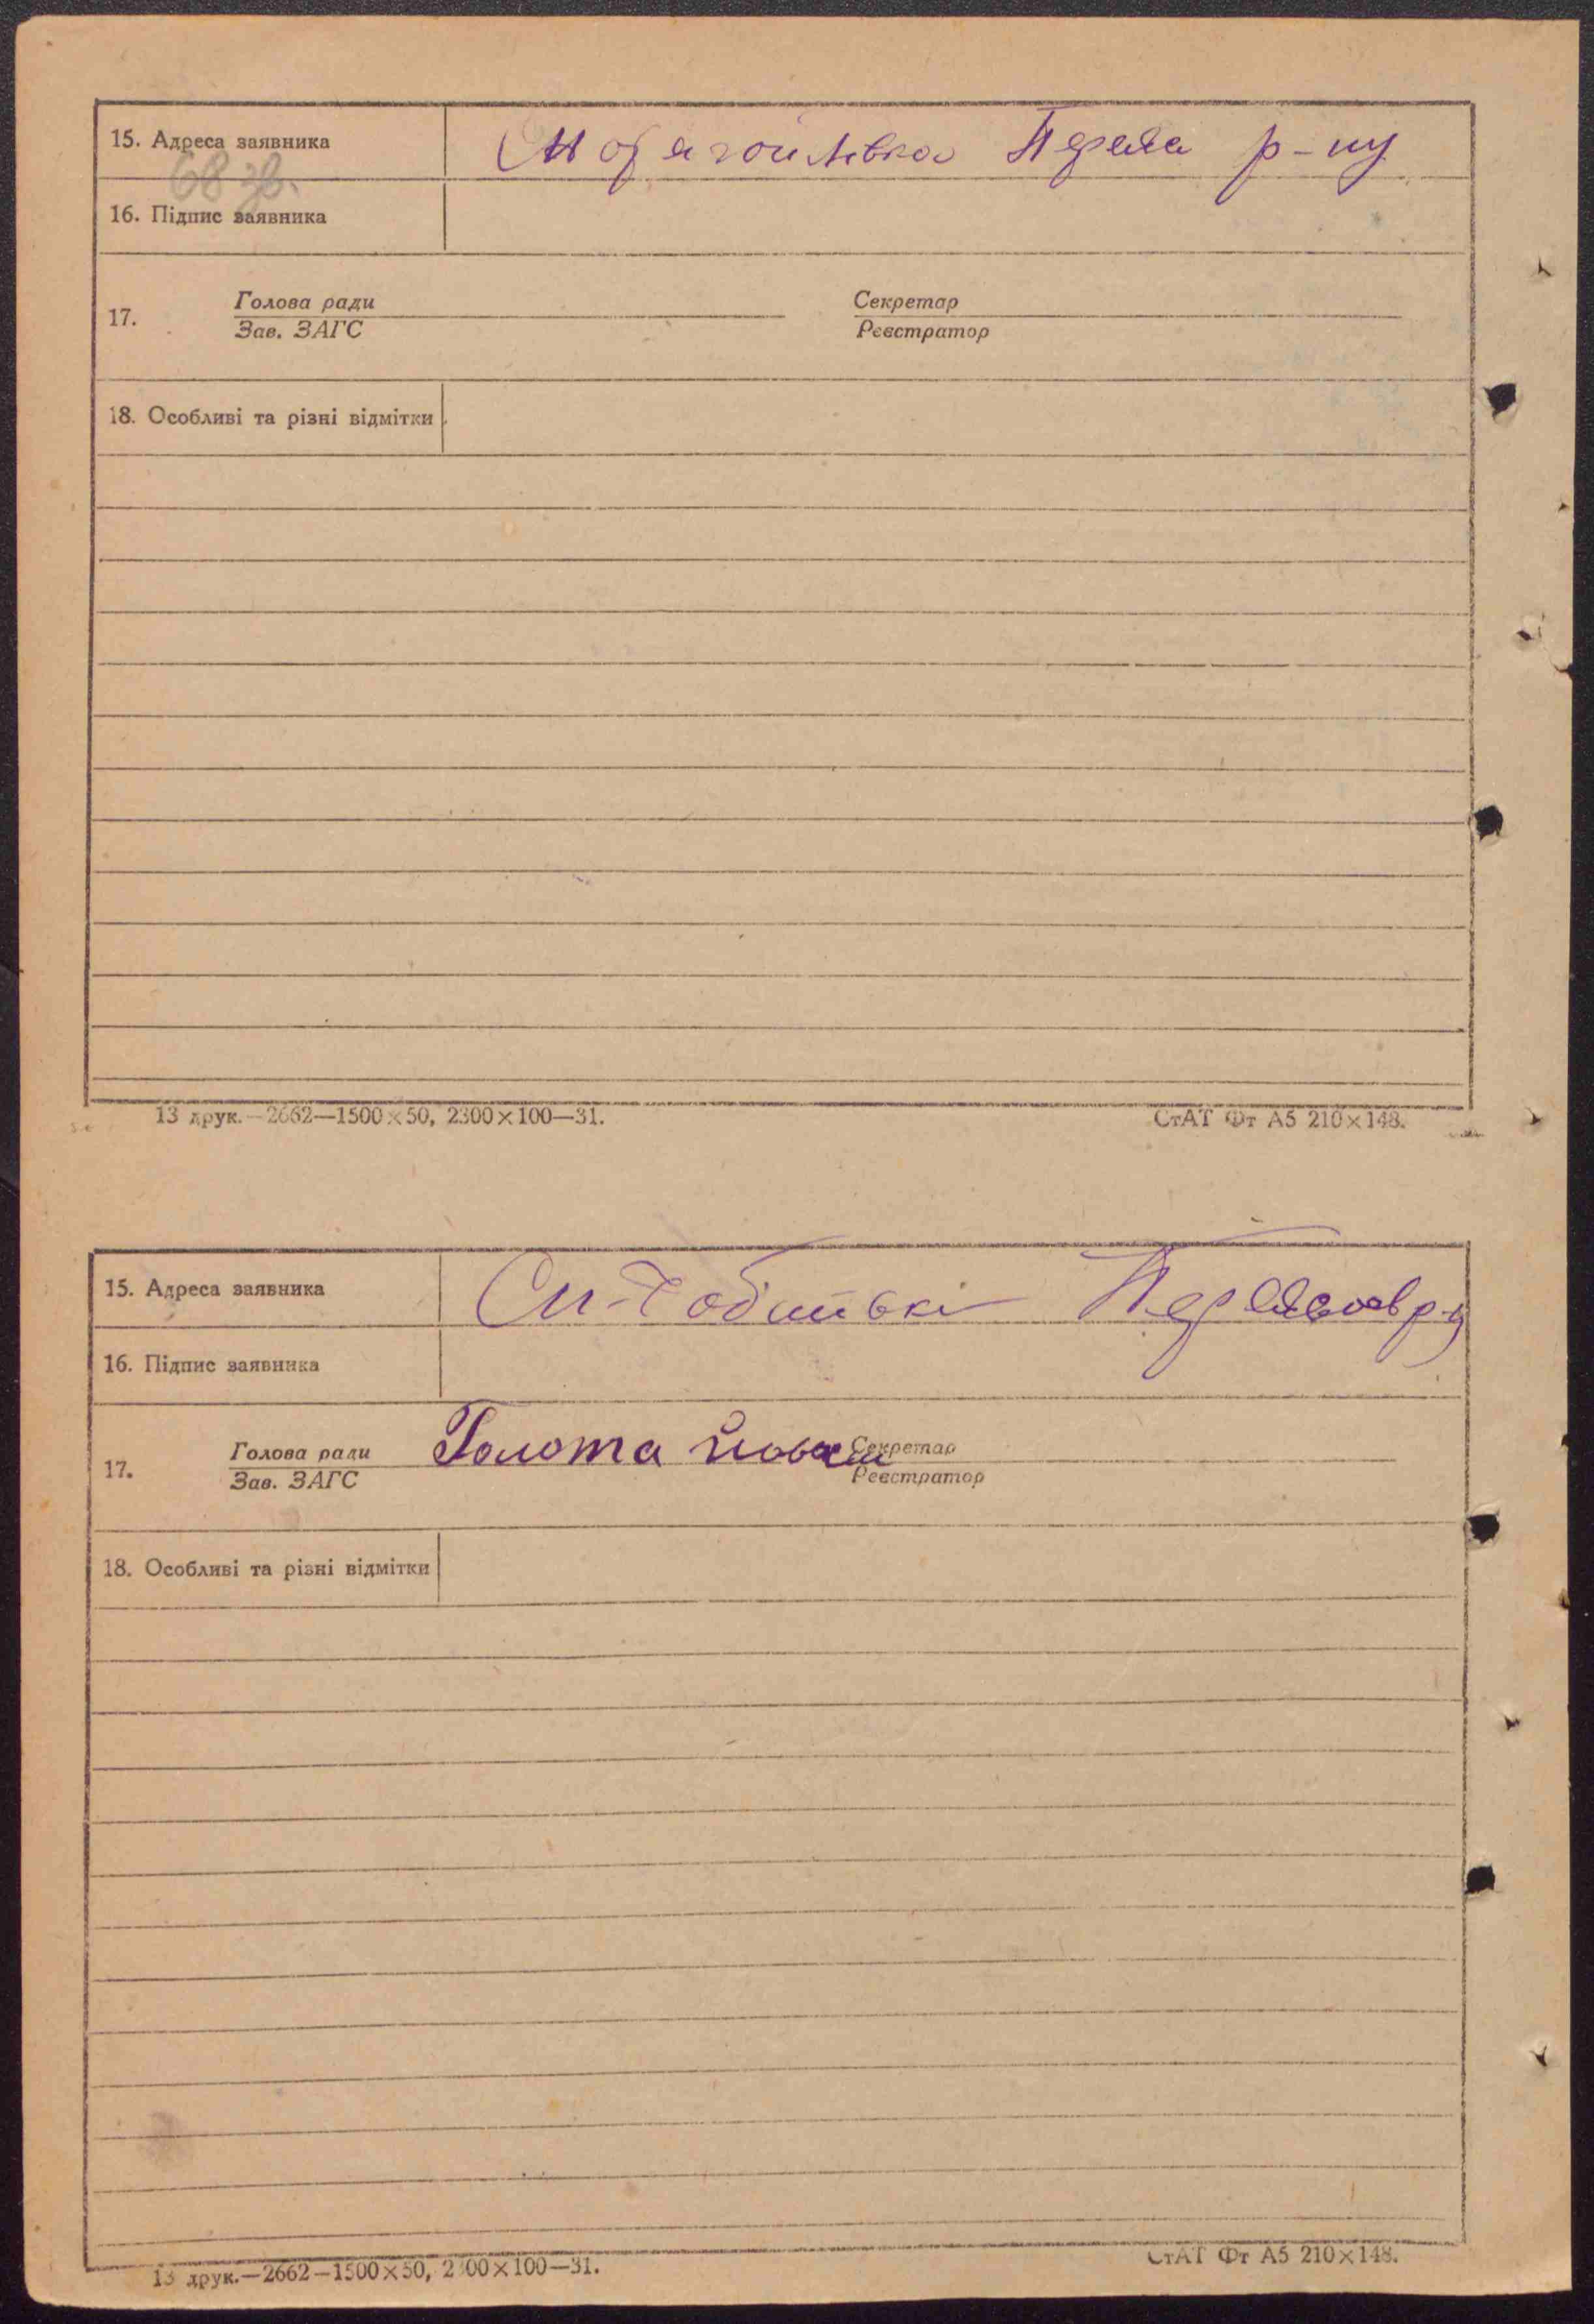 15. Адреса заявника р-ну
68 зв.
16. Підпис заявника
Голова ради Секретар
17.
Зав. ЗАГС Реєстратор
18. Особливі та різні відмітки
13 друк.—2662—1500×50, 2300×100—31. СтАТ Фт А5 210×148.
15. Адреса заявника
16. Підпис заявника
Голова ради Голота Секретар
17.
Зав. ЗАГС Реєстратор
18. Особливі та різні відмітки
13 друк.—2662—1500×50, 2300×100—31. СтАТ Фт А5 210×148.